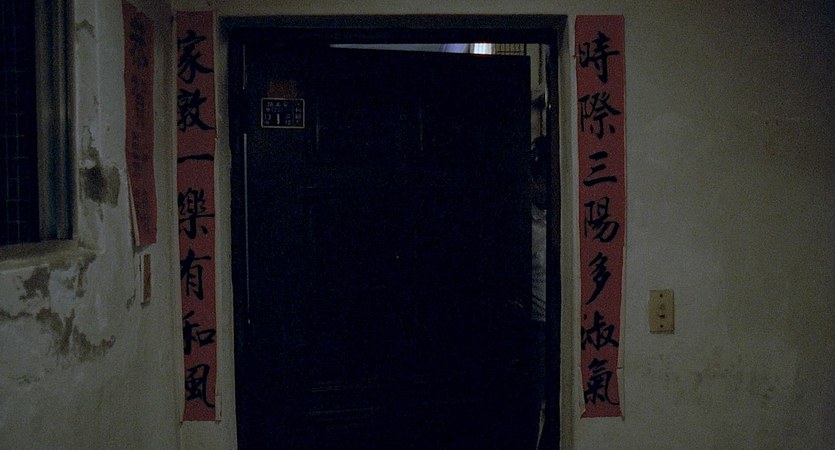 時際三陽多淑氣
家敦一樂有和風